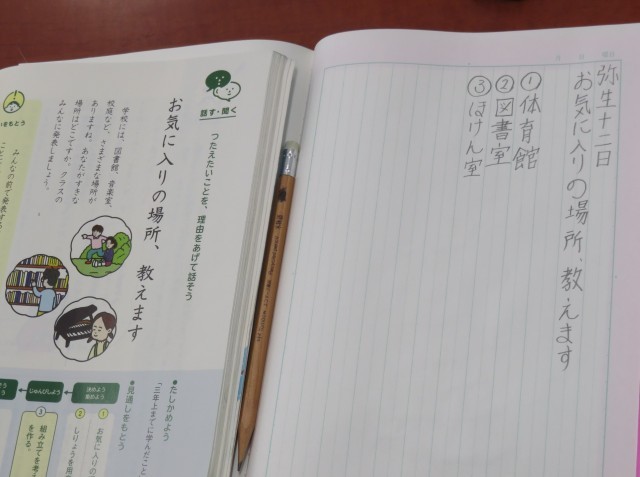 弥生十二日
お気に入りの場所、教えます
①体育館
②図書室
③ほけん室
話す・聞く
つたえたいことを、理由をあげて話そう
お気に入りの場所、教えます
学校には、図書館、音楽室、
校庭など、さまざまな場所が
ありますね。あなたがすきな
場所はどこですか。クラスの
みんなに発表しましょう。
をもとう
みんなの前で発表する
●たしかめよう
「三年上までに学んだこと
●見通しをもとう
決めよう
集めよう
じゅんびしよう
①
お気に入りの
②
しりょうを用
③
組み立てを考え
を作る。